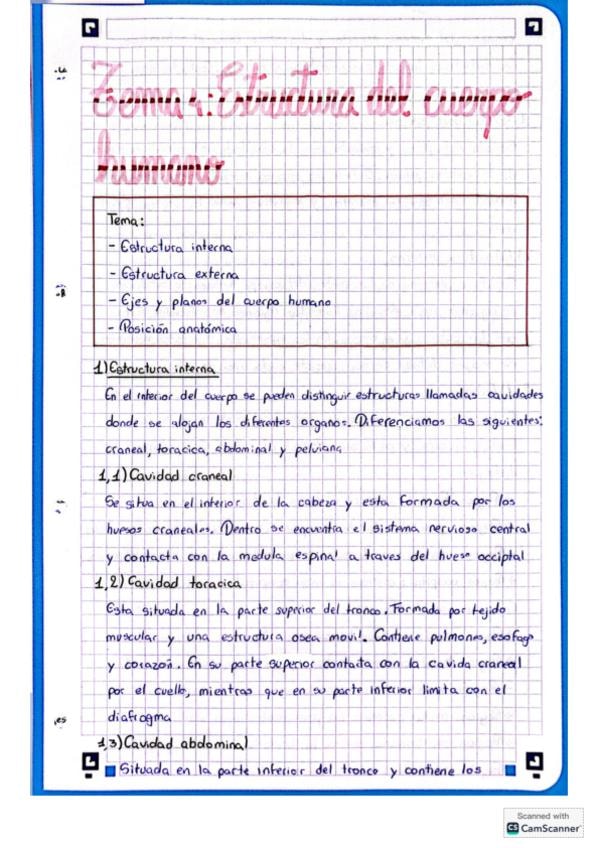 Tema 1: Estructura del cuerpo
humano
Tema:
- Estructura interna
- Estructura externa
- Ejes y planos del cuerpo humano
- Posición anatómica
1) Estructura interna
En el interior del cuerpo se pueden distinguir estructuras llamadas cavidades
donde se alojan los diferentes organos. Diferenciamos las siguientes:
craneal, toracica, abdominal y pelviana
1,1) Cavidad craneal
Se situa en el interior de la cabeza y esta formada por los
huesos craneales. Dentro se encuentra el sistema nervioso central
y contacta con la medula espinal a traves del hueso occiptal
1,2) Cavidad toracica
Esta situada en la parte superior del tronco. Formada por tejido
muscular y una estructura osea movil. Contiene pulmones, esofago
y corazon. En su parte superior contacta con la cavida craneal
por el cuello, mientras que en su parte inferior limita con el
diafragma
1,3) Cavidad abdominal
Situada en la parte inferior del tronco y contiene los
es
Scanned with
CS CamScanner